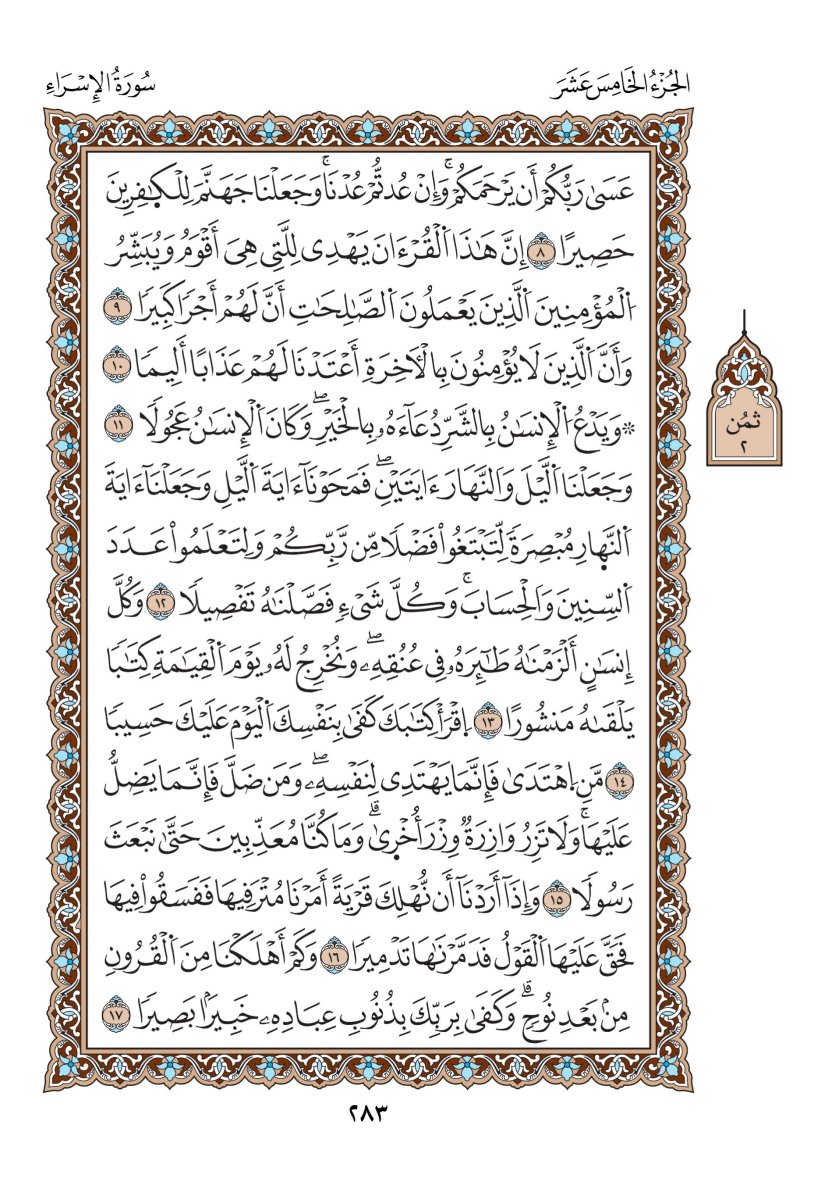 الجُزْءُ الخَامِسَ عَشَرَ
سُورَةُ الإِسْرَاءِ
عَسَىٰ رَبُّكُمْ أَن يَرْحَمَكُمْۚ وَإِنْ عُدتُّمْ عُدْنَاۚ وَجَعَلْنَا جَهَنَّمَ لِلْكٰفِرِينَ
حَصِيرًا ٨ إِنَّ هَٰذَا اَ۬لْقُرْءَانَ يَهْدِى لِلَّتِى هِىَ أَقْوَمُ وَيُبَشِّرُ
اُ۬لْمُؤْمِنِينَ اَ۬لَّذِينَ يَعْمَلُونَ اَ۬لصَّٰلِحَٰتِ أَنَّ لَهُمْ أَجْرًا كَبِيرًا ٩
وَأَنَّ اَ۬لَّذِينَ لَا يُؤْمِنُونَ بِالْأٓخِرَةِ أَعْتَدْنَا لَهُمْ عَذَابًا أَلِيمًا ١٠
۞ وَيَدْعُ اُ۬لْإِنسَٰنُ بِالشَّرِّ دُعَآءَهُۥ بِالْخَيْرِۖ وَكَانَ اَ۬لْإِنسَٰنُ عَجُولًا ١١
وَجَعَلْنَا اَ۬لَّيْلَ وَالنَّهَارَ ءَايَتَيْنِۖ فَمَحَوْنَآ ءَايَةَ اَ۬لَّيْلِ وَجَعَلْنَآ ءَايَةَ
اَ۬لنَّهٰارِ مُبْصِرَةً لِّتَبْتَغُواْ فَضْلًا مِّن رَّبِّكُمْ وَلِتَعْلَمُواْ عَدَدَ
اَ۬لسِّنِينَ وَالْحِسَابَۚ وَكُلَّ شَىْءٍ فَصَّلْنَٰهُ تَفْصِيلًا ١٢ وَكُلَّ
إِنسَٰنٍ أَلْزَمْنَٰهُ طَٰٓئِرَهُۥ فِى عُنُقِهِۦۖ وَنُخْرِجُ لَهُۥ يَوْمَ اَ۬لْقِيَٰمَةِ كِتَٰبًا
يَلْقَىٰهُ مَنشُورًا ١٣ اِ۪قْرَأْ كِتَٰبَكَ كَفَىٰ بِنَفْسِكَ اَ۬لْيَوْمَ عَلَيْكَ حَسِيبًا
١٤ مَّنِ اِ۪هْتَدَىٰ فَإِنَّمَا يَهْتَدِى لِنَفْسِهِۦۖ وَمَن ضَلَّ فَإِنَّمَا يَضِلُّ
عَلَيْهَاۚ وَلَا تَزِرُ وَازِرَةٌ وِزْرَ أُخْرٜىٰۗ وَمَا كُنَّا مُعَذِّبِينَ حَتَّىٰ نَبْعَثَ
رَسُولًا ١٥ وَإِذَآ أَرَدْنَآ أَن نُّهْلِكَ قَرْيَةً أَمَرْنَا مُتْرَفِيهَا فَفَسَقُواْ فِيهَا
فَحَقَّ عَلَيْهَا اَ۬لْقَوْلُ فَدَمَّرْنَٰهَا تَدْمِيرًا ١٦ وَكَمْ أَهْلَكْنَا مِنَ اَ۬لْقُرُونِ
مِنۢ بَعْدِ نُوحٍۗ وَكَفَىٰ بِرَبِّكَ بِذُنُوبِ عِبَادِهِۦ خَبِيرًۢا بَصِيرًا ١٧
ثمُن
٢
٢٨٣